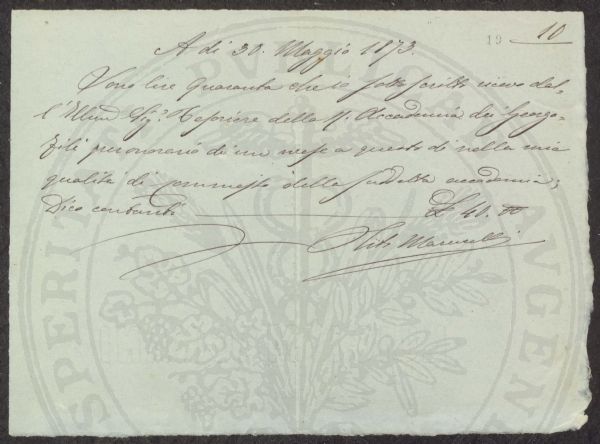 19 10
A dì 30. Maggio 1873.
Sono lire Quaranta che io sottoscritto ricevo dal-
l'Illmo Sigr. Tesoriere della R. Accademia dei Georgo-
fili per onorario di un mese a questo dì nella mia
qualità di commesso della suddetta accademia;
Dico contanti £ 40. 00
Marucelli
PERITATI AUGEN